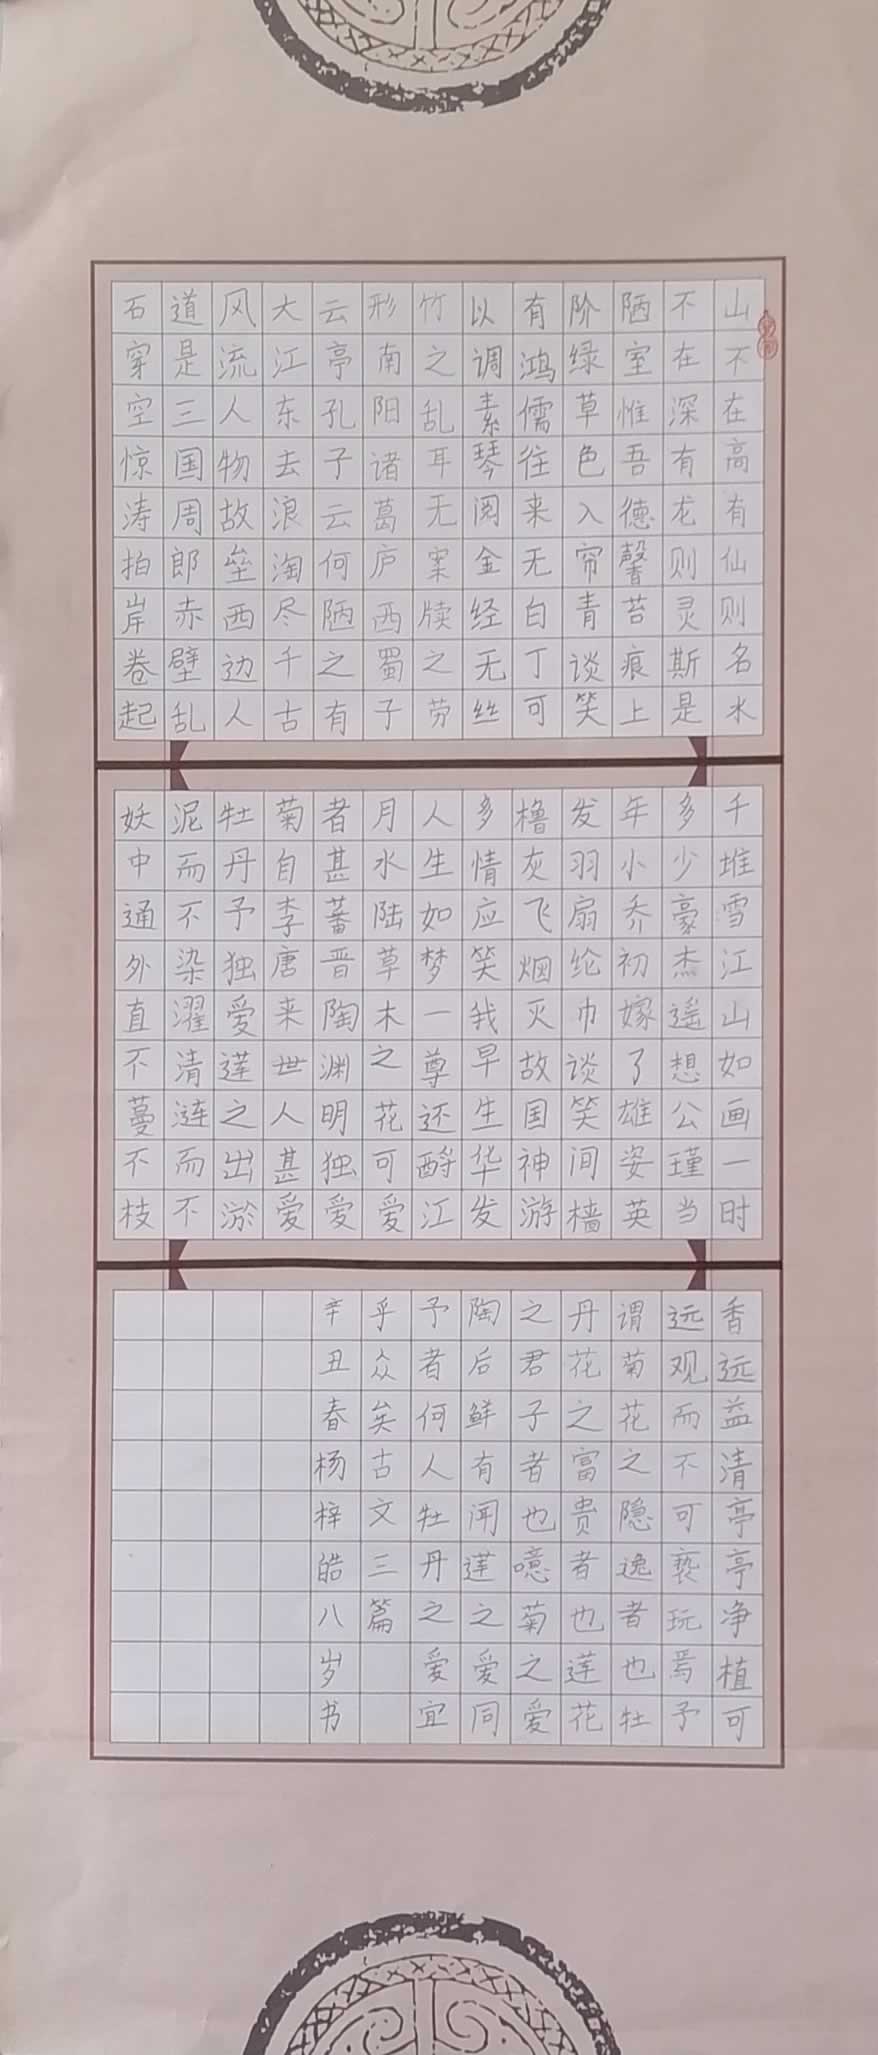 山不在高有仙则名水
不在深有龙则灵斯是
陋室惟吾德馨苔痕上
阶绿草色入帘青谈笑
有鸿儒往来无白丁可
以调素琴阅金经无丝
竹之乱耳无案牍之劳
形南阳诸葛庐西蜀子
云亭孔子云何陋之有
大江东去浪淘尽千古
风流人物故垒西边人
道是三国周郎赤壁乱
石穿空惊涛拍岸卷起
千堆雪江山如画一时
多少豪杰遥想公瑾当
年小乔初嫁了雄姿英
发羽扇纶巾谈笑间樯
橹灰飞烟灭故国神游
多情应笑我早生华发
人生如梦一尊还酹江
月水陆草木之花可爱
者甚蕃晋陶渊明独爱
菊自李唐来世人甚爱
牡丹予独爱莲之出淤
泥而不染濯清涟而不
妖中通外直不蔓不枝
香远益清亭亭净植可
远观而不可亵玩焉予
谓菊花之隐逸者也牡
丹花之富贵者也莲花
之君子者也噫菊之爱
陶后鲜有闻莲之爱同
予者何人牡丹之爱宜
乎众矣古文三篇
辛丑春杨梓皓八岁书